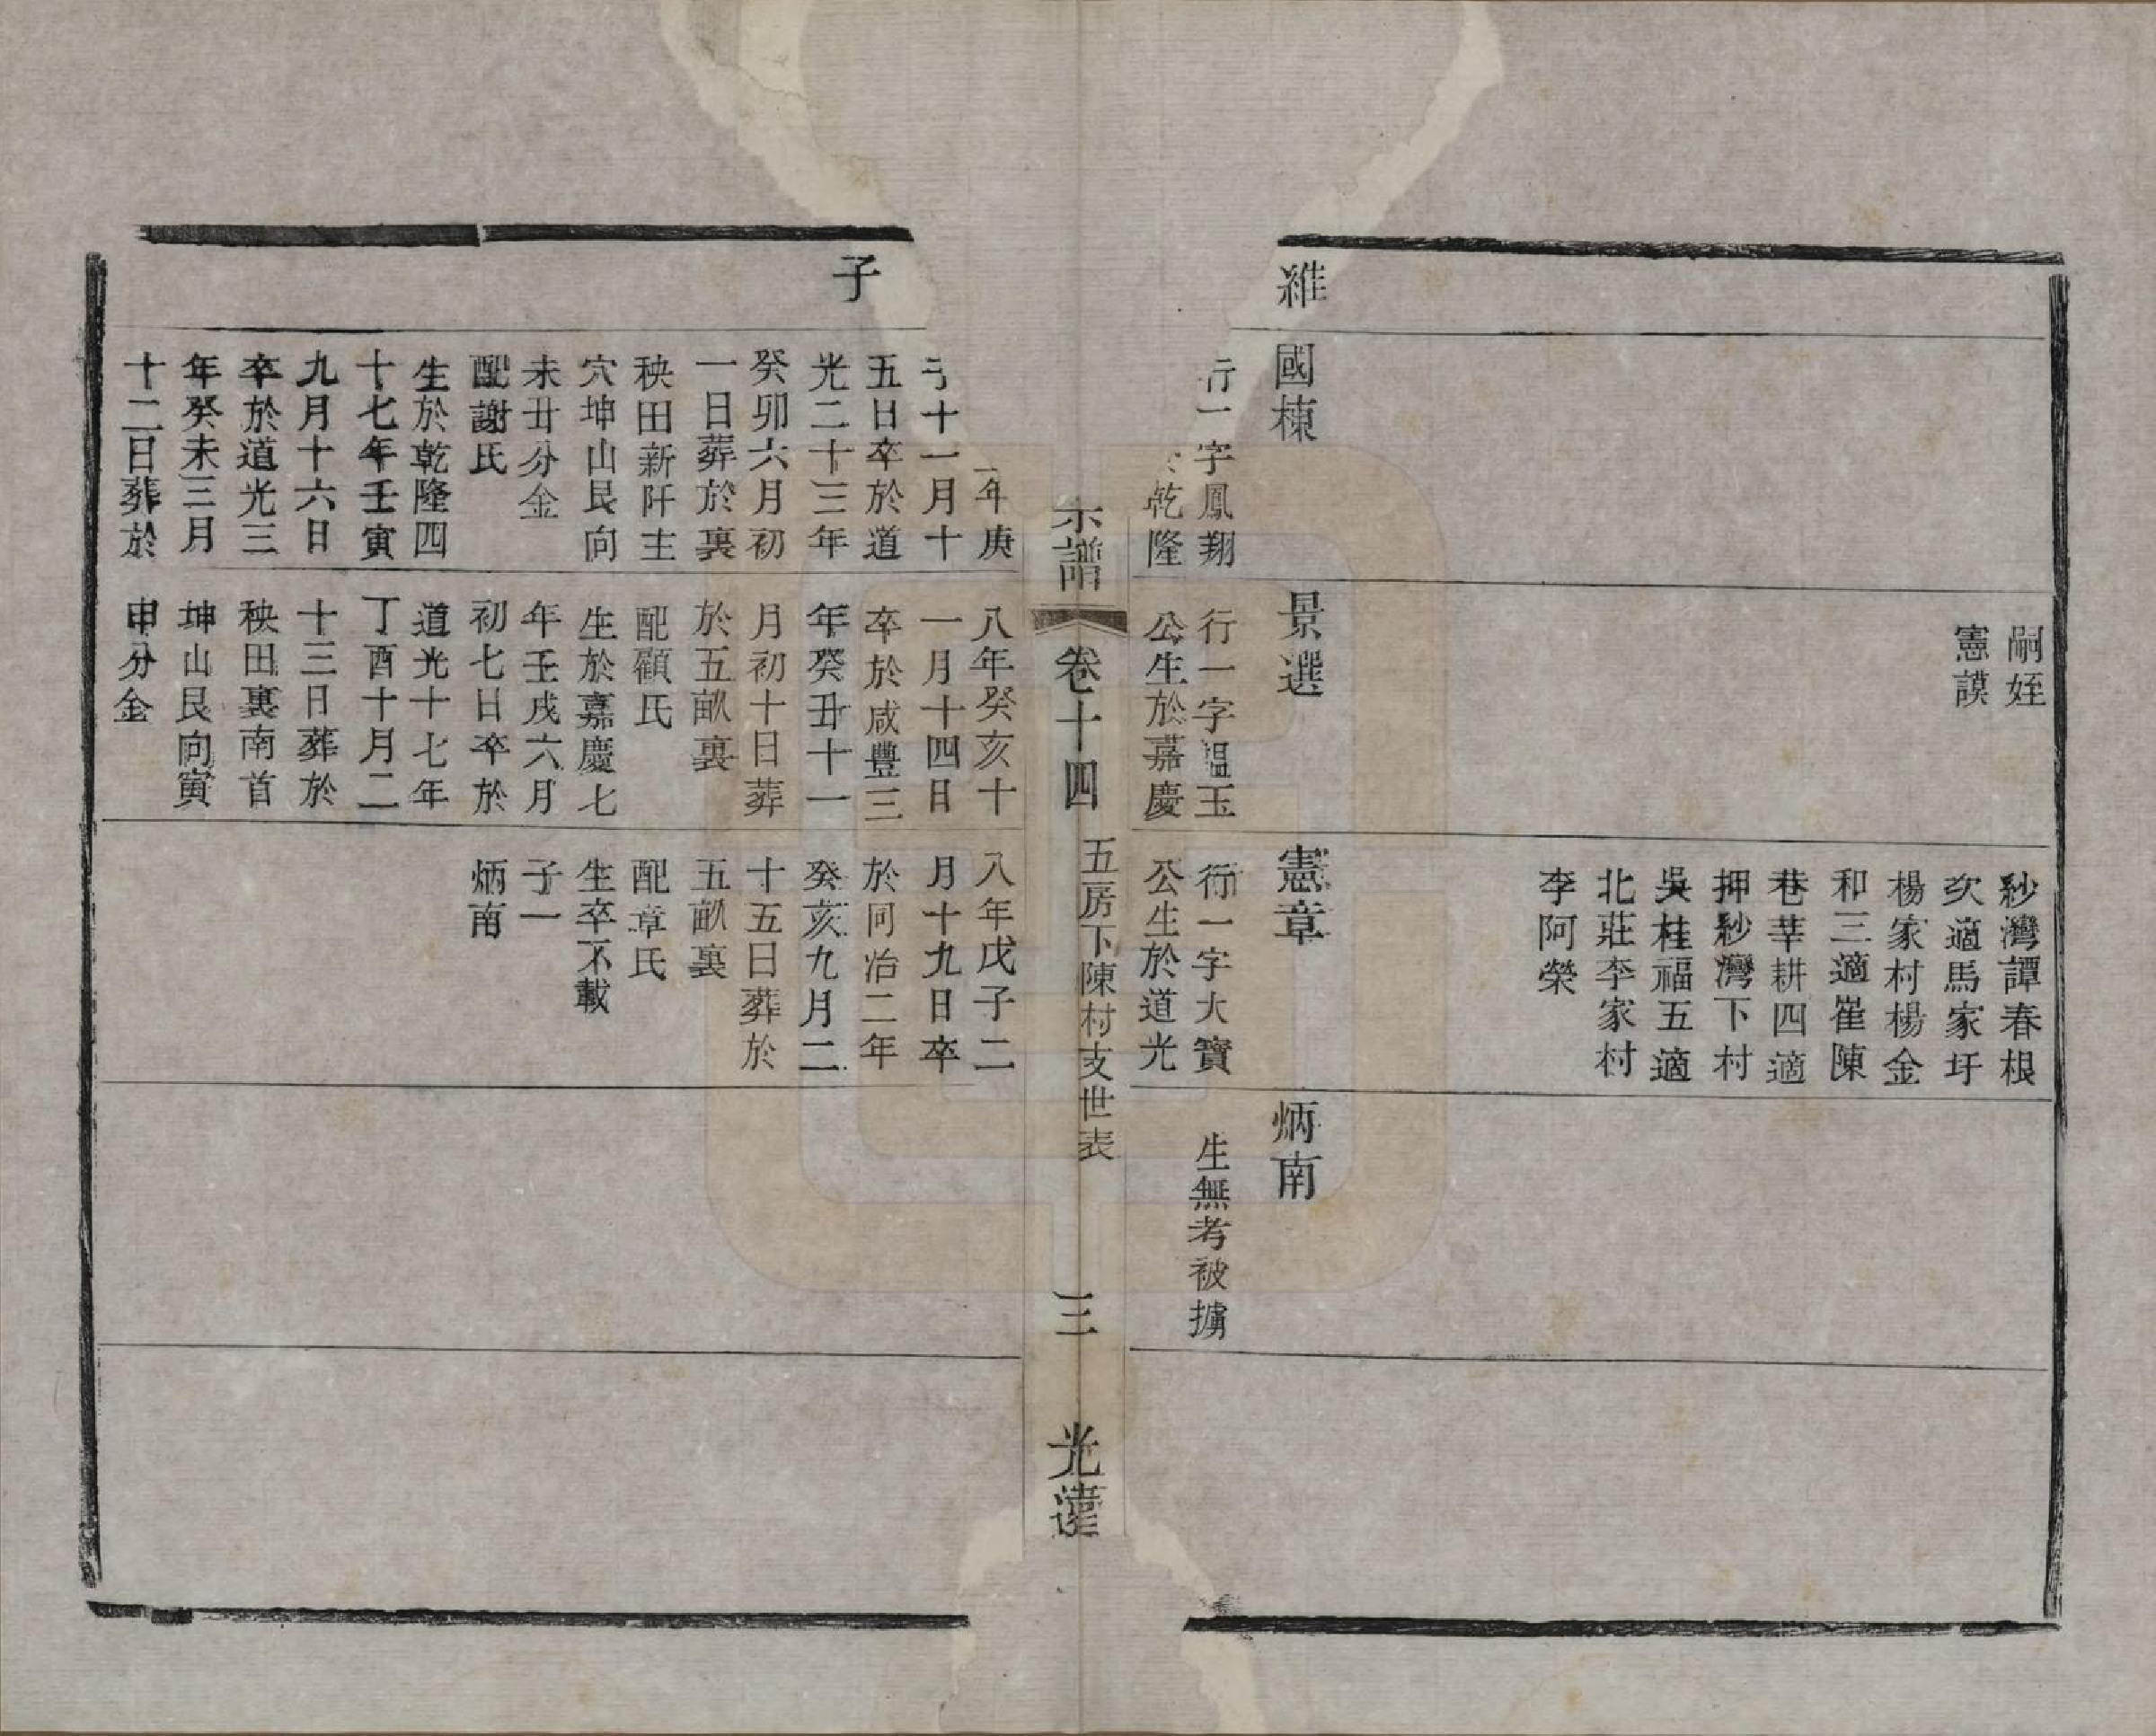 維
子
國棟
行一字鳳翔
乾隆
年庚
十一月十
五日卒於道
光二十三年
癸卯六月初
一日葬於裏
秧田新阡主
穴坤山艮向
未丑分金
配謝氏
生於乾隆四
十七年壬寅
九月十六日
卒於道光三
年癸未三月
十二日葬於
嗣姪
憲謨
景選
行一字韞玉
公生於嘉慶
八年癸亥十
一月十四日
卒於咸豐三
年癸丑十一
月初十日葬
於五畝裏
配顧氏
生於嘉慶七
年壬戌六月
初七日卒於
道光十七年
丁酉十月二
十三日葬於
秧田裏南首
坤山艮向寅
申分金
紗灣譚春根
次適馬家圩
楊家村楊金
和三適崔陳
巷莘耕四適
押紗灣下村
吳桂福五適
北莊李家村
李阿榮
憲章
行一字大寶
公生於道光
八年戊子二
月十九日卒
於同治二年
癸亥九月二
十五日葬於
五畝裏
配章氏
生卒不載
子一
炳南
炳南
生無考被擄
宗譜
卷十四
五房下陳村支世表
三
光遠